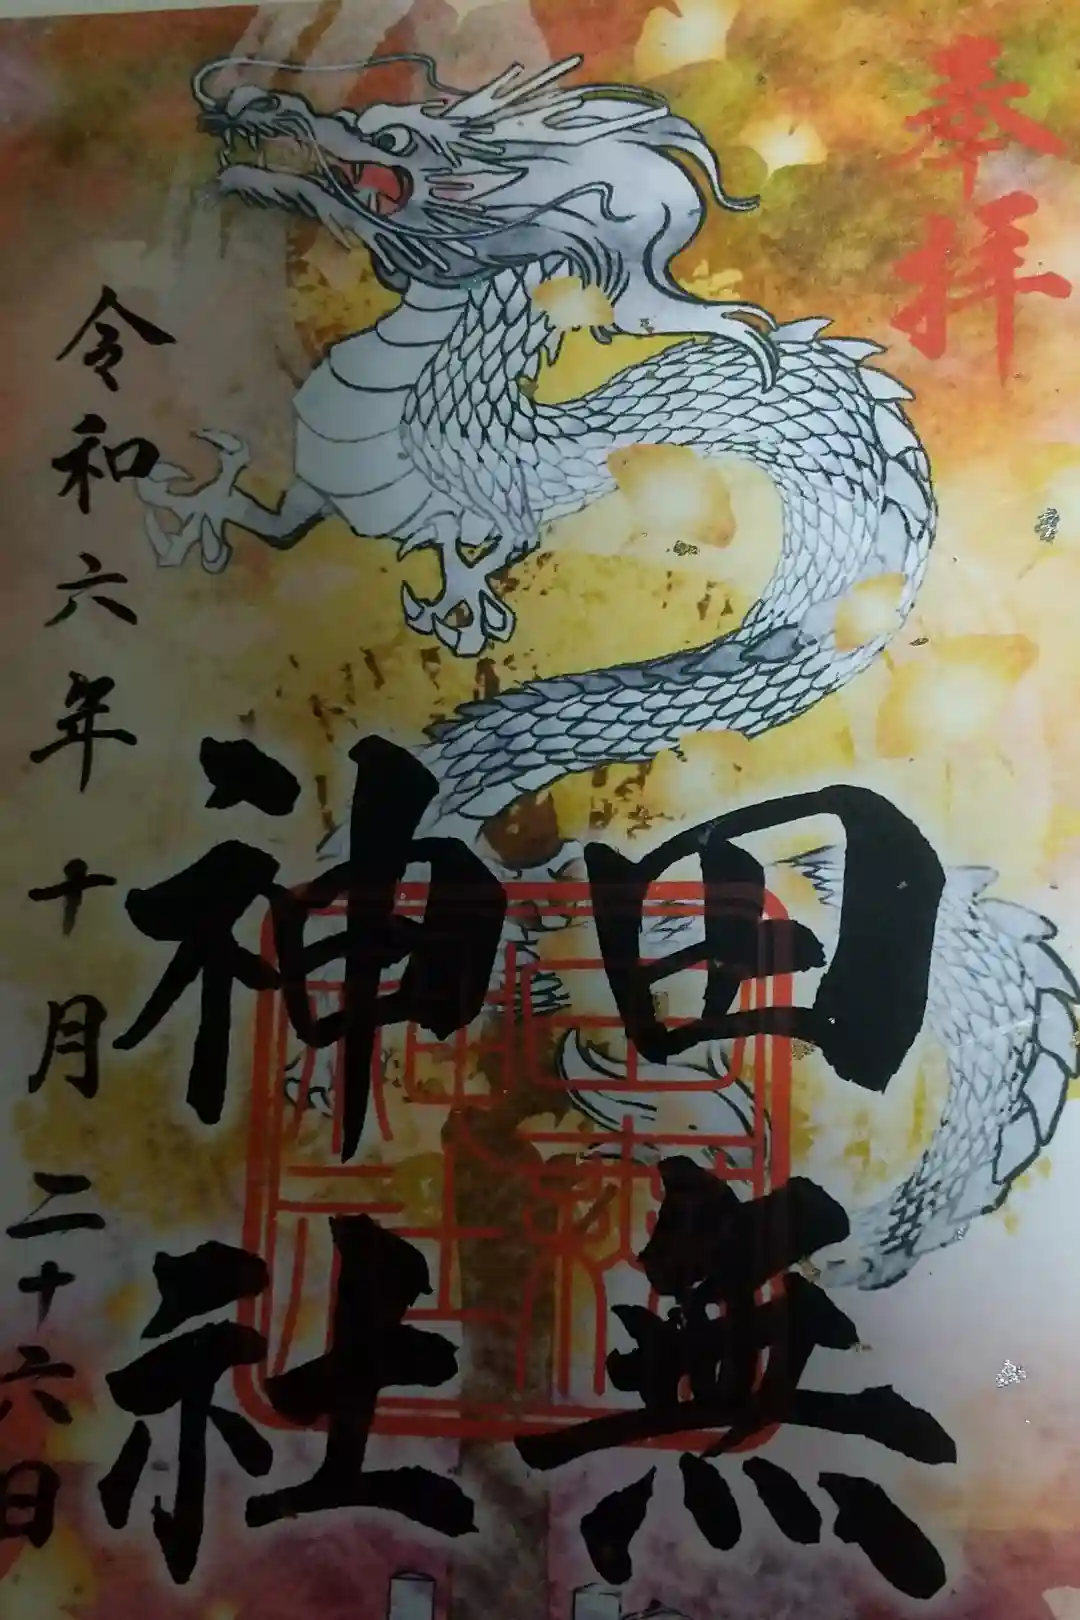 奉拝
田無
神社
令和六年十月二十六日
田無
神社